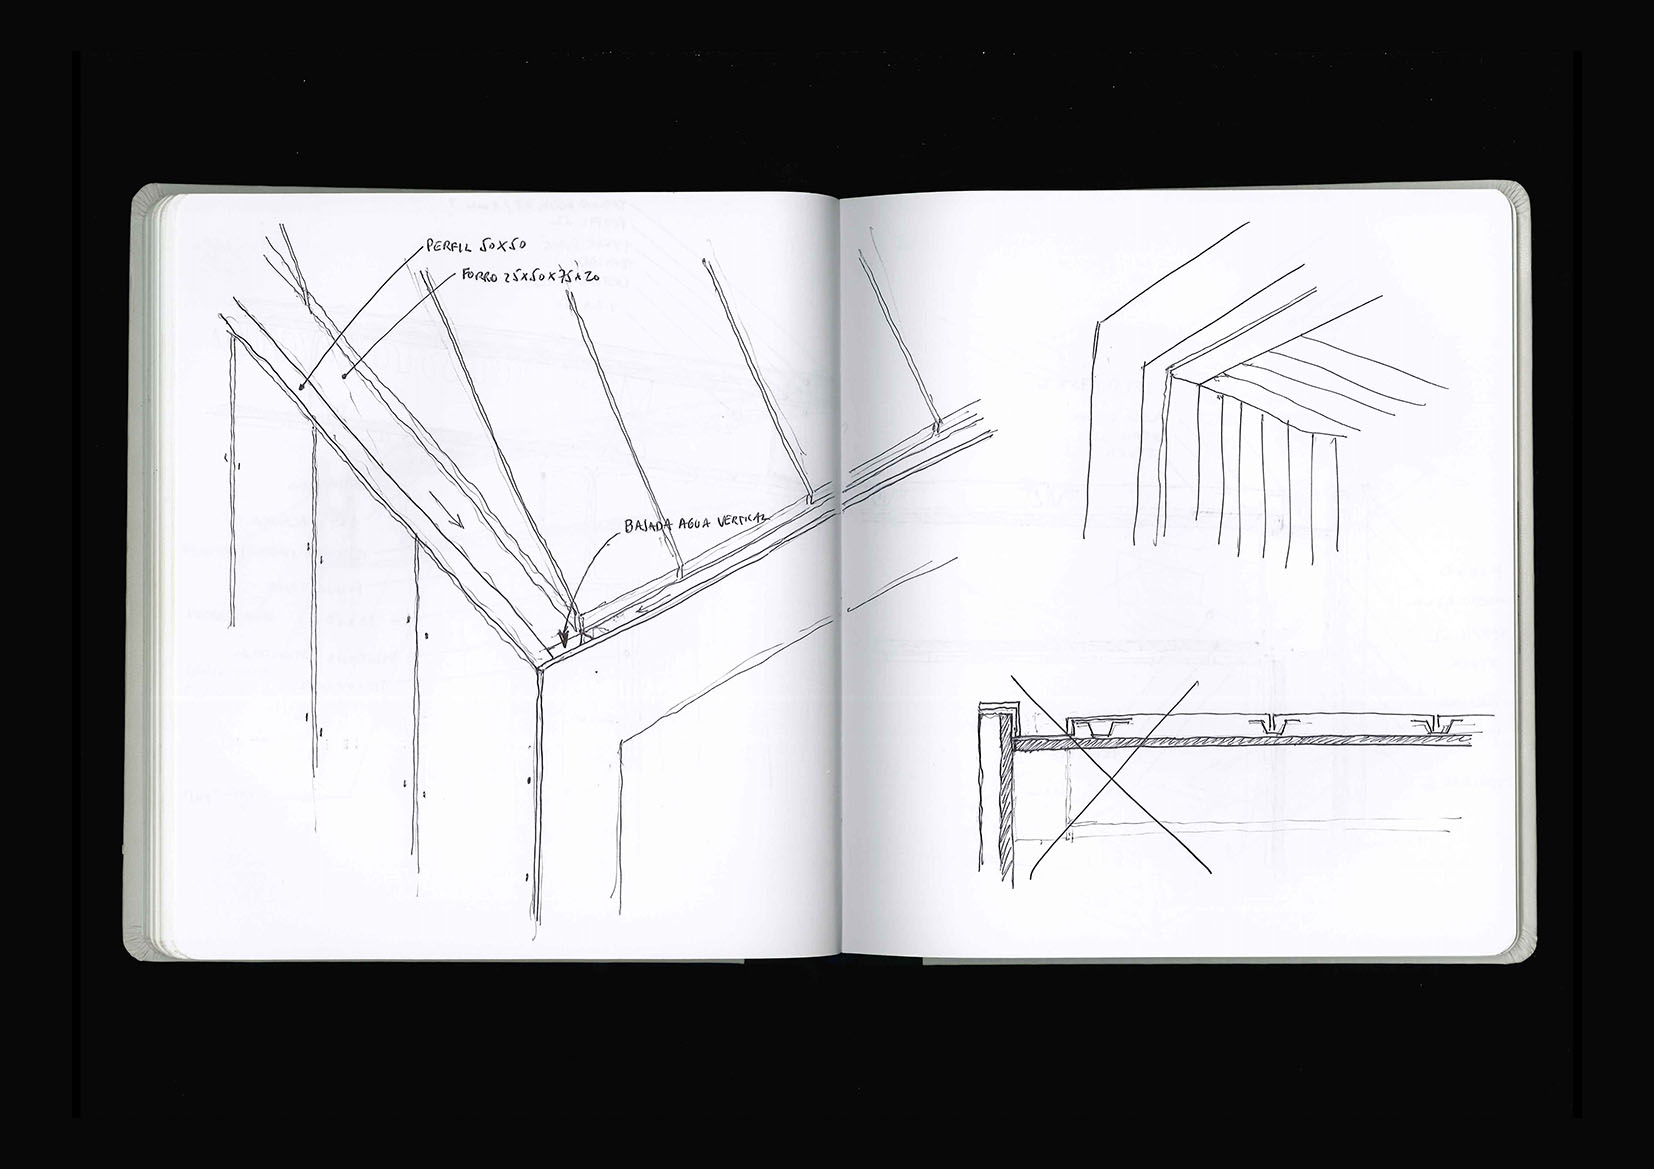 PERFIL 50X50
FORRO 25X50X75X20
BAJADA AGUA VERTICAL